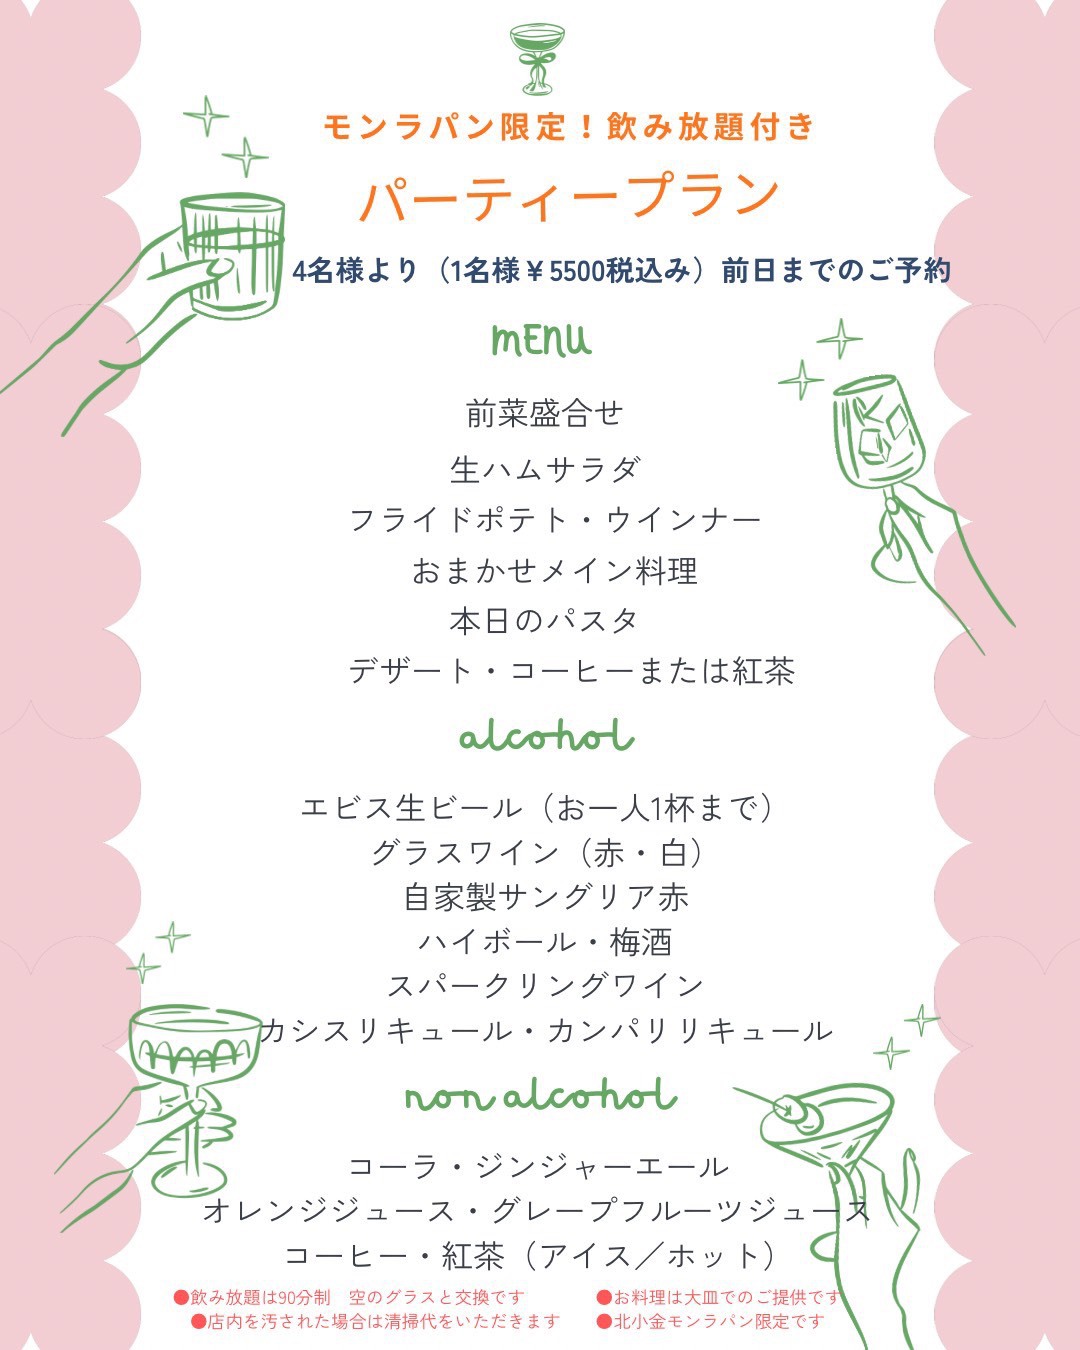 モンラパン限定！飲み放題付き
パーティープラン
4名様より（1名様￥5500税込み）前日までのご予約
MENU
前菜盛合せ
生ハムサラダ
フライドポテト・ウインナー
おまかせメイン料理
本日のパスタ
デザート・コーヒーまたは紅茶
alcohol
エビス生ビール（お一人1杯まで）
グラスワイン（赤・白）
自家製サングリア赤
ハイボール・梅酒
スパークリングワイン
カシスリキュール・カンパリリキュール
non alcohol
コーラ・ジンジャーエール
オレンジジュース・グレープフルーツジュース
コーヒー・紅茶（アイス／ホット）
●飲み放題は90分制　空のグラスと交換です
●店内を汚された場合は清掃代をいただきます
●お料理は大皿でのご提供です
●北小金モンラパン限定です